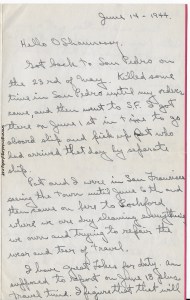 June 14 - 1944.
Hello O'Shaunessy
Got back to San Pedro on
the 23rd of May. Killed some
time in San Pedro until my orders
came, and then went to S.F. I got
there on June 1 at in time to go
aboard ship and pick up Pat who
had arrived that day by separate
ship.
Pat and I were in San Francisco
seeing the town until June 6th and
then came on here to Rockford
where we are dry cleaning everything
we own and trying to repair the
wear and tear of travel.
I have great plans for duty - am
supposed to report on June 18 plus
travel time. I figure that that will